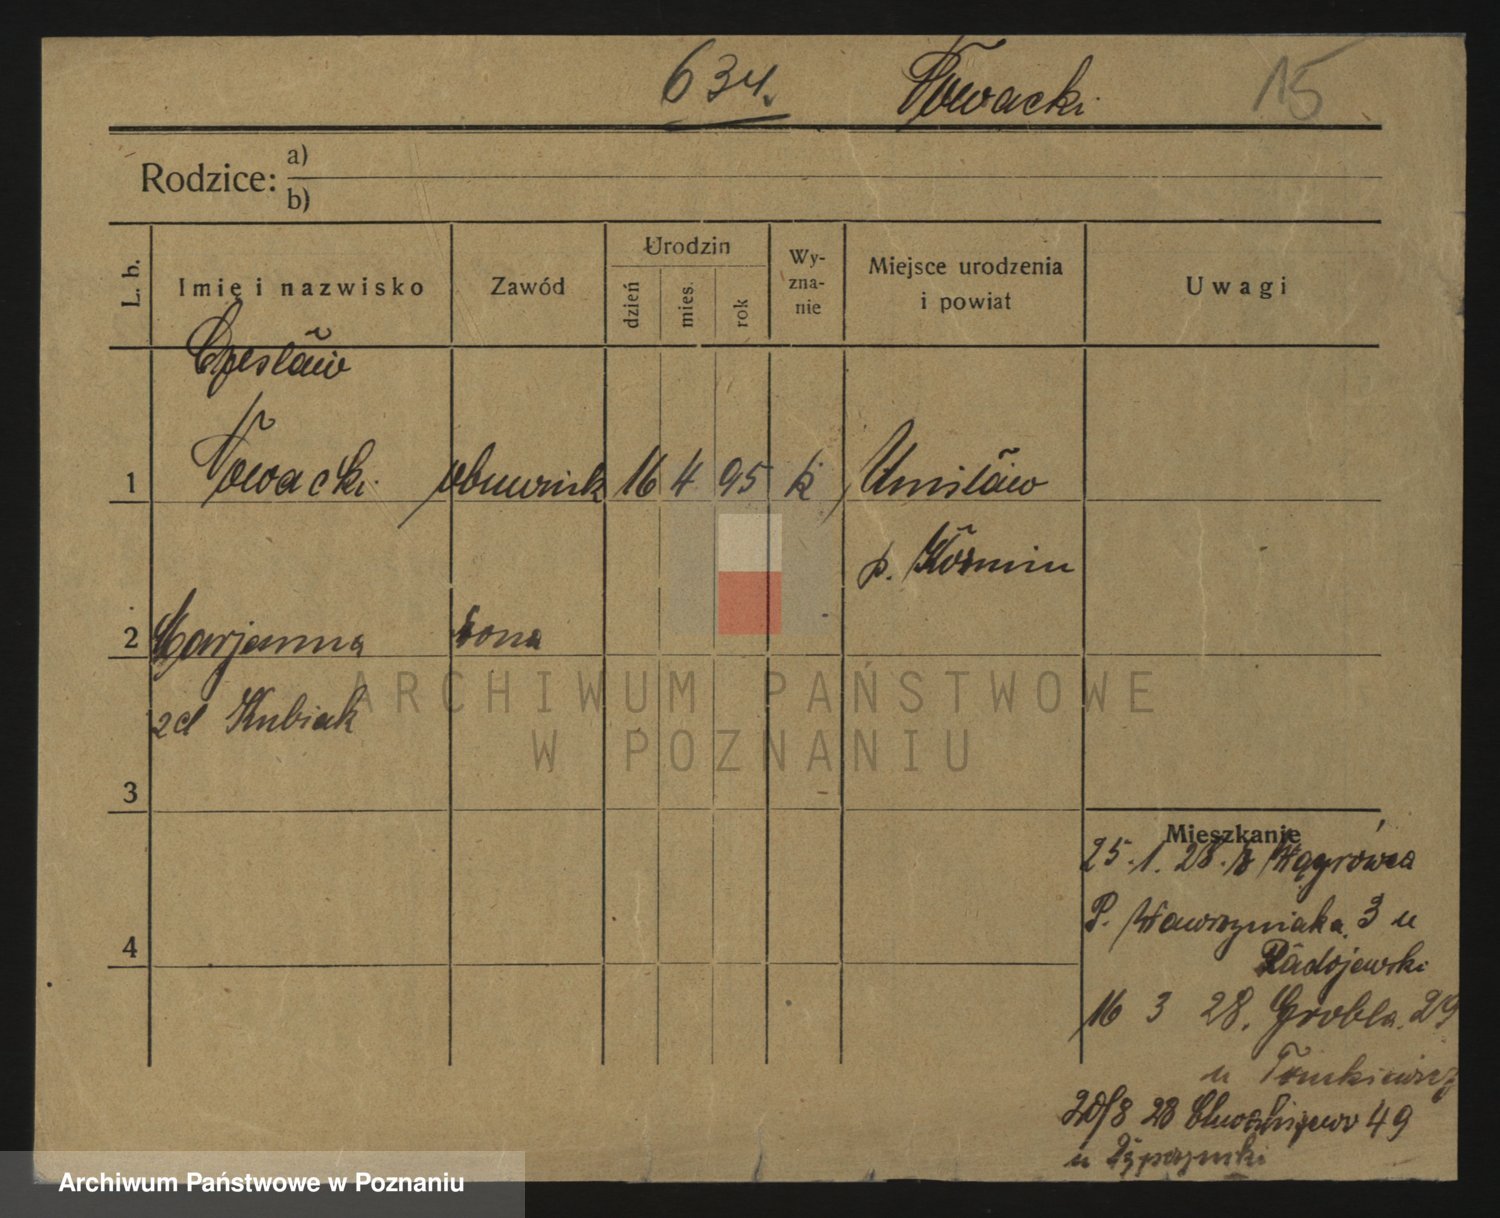 634. Nowacki 15
Rodzice: a)
b)
L. b. Imię i nazwisko Zawód Urodzin dzień mies. rok Wy-zna-nie Miejsce urodzenia i powiat Uwagi
Czesław
1 Nowacki obuwnik 16 4 95 k Umisław
p. Koźmin
2 Marjanna żona
zd Kubiak
ARCHIWUM PAŃSTWOWE
W POZNANIU
3
Mieszkanie
25. 1. 28. z Wągrówca
P. Wawrzyniaka 3 u
4 Radojewski
16 3 28. Grobla. 29
u Tomkiewicz
20/8 28 49
u
Archiwum Państwowe w Poznaniu